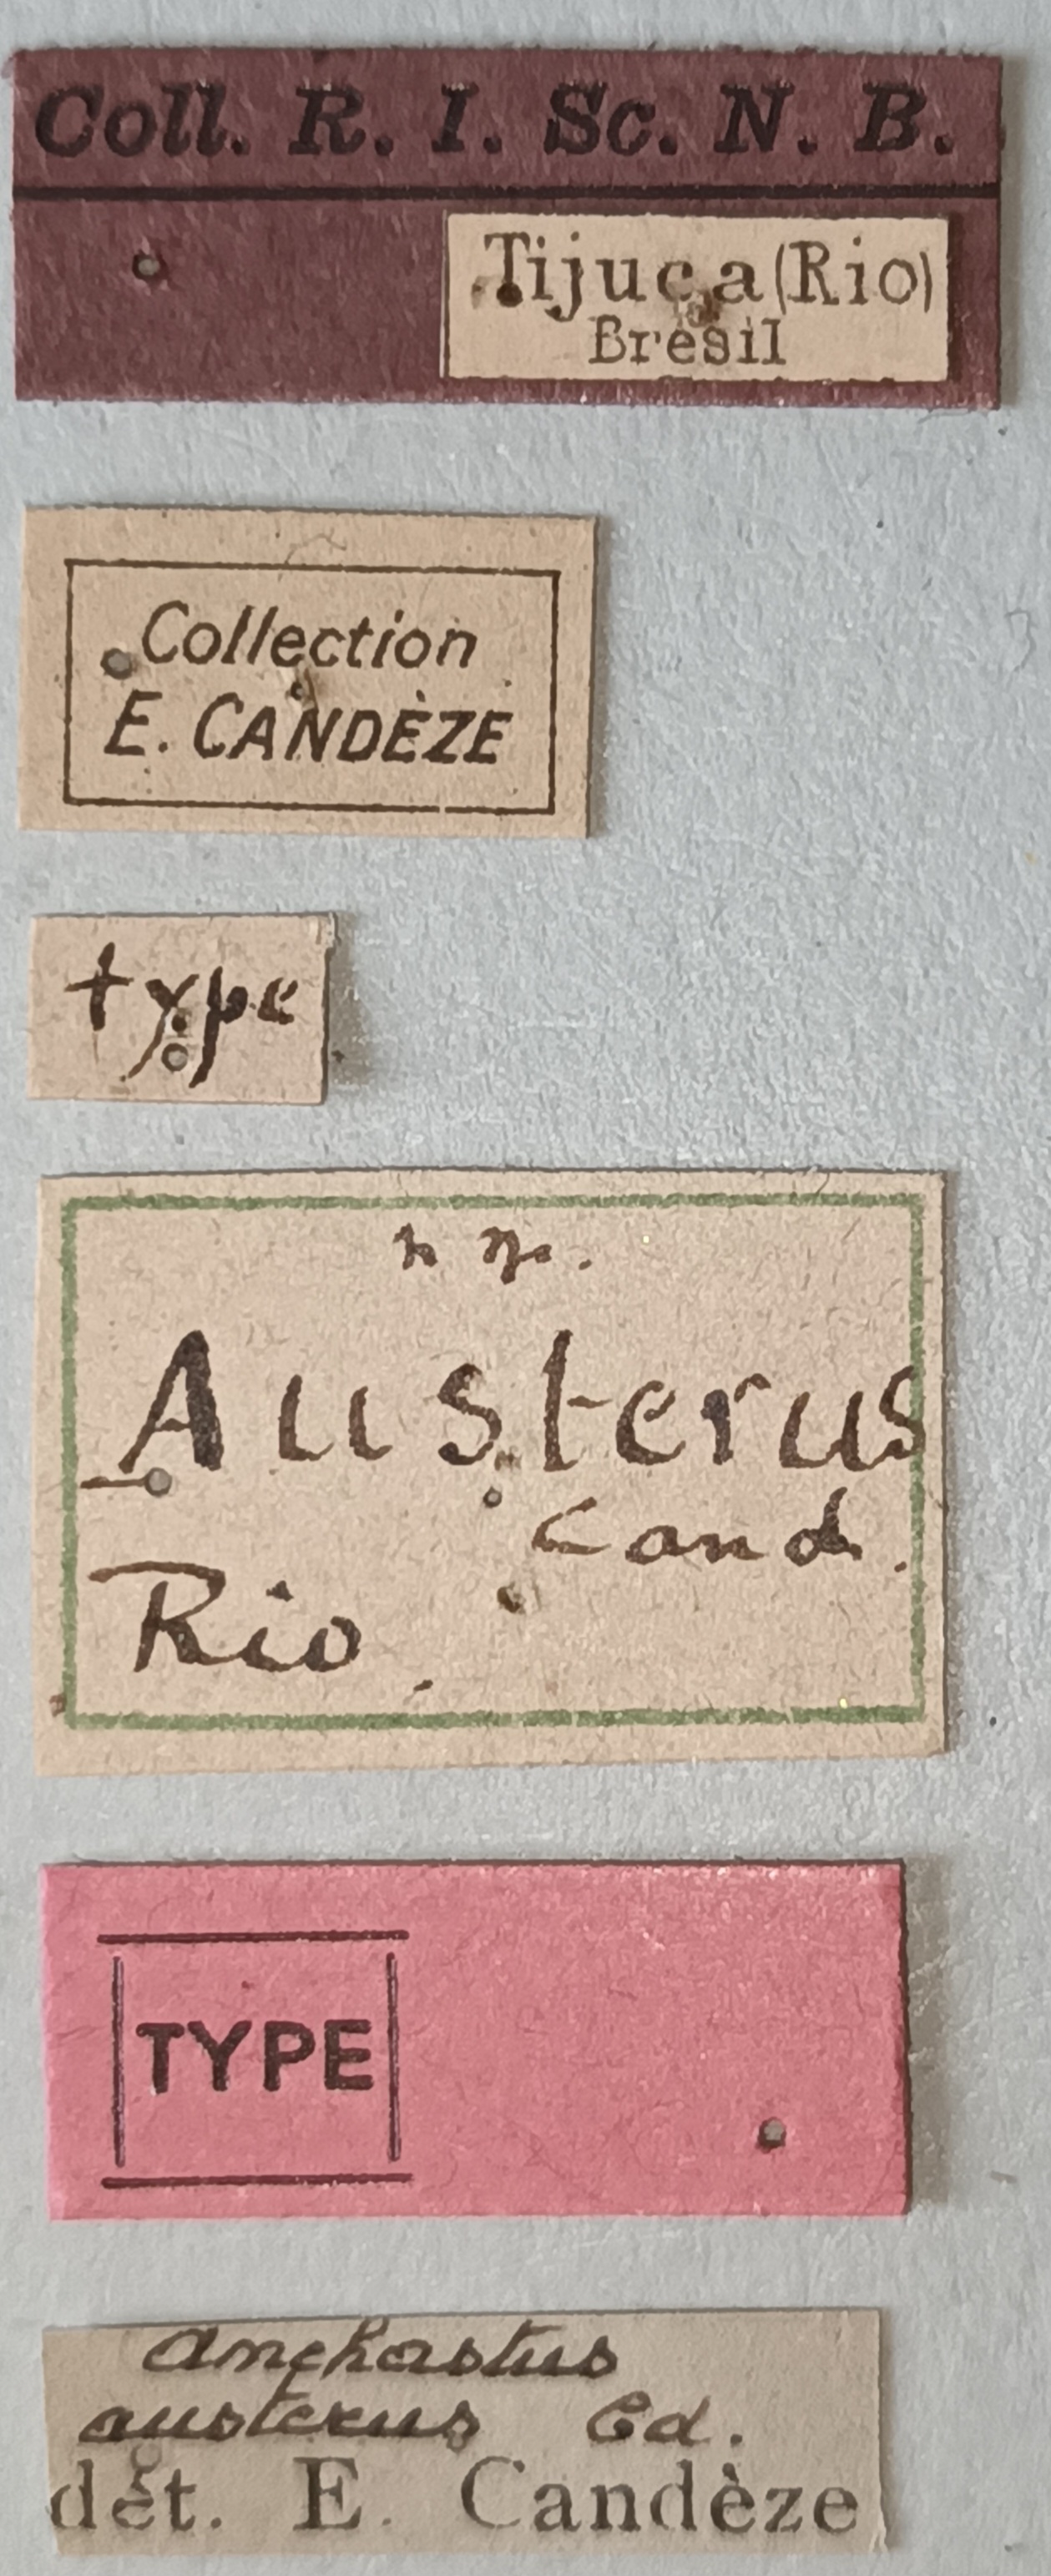 Coll. R. I. Sc. N. B.
Tijuca (Rio)
Brésil
Collection
E. CANDÈZE
type
n sp.
Austerus
Cand.
Rio.
TYPE
Anchastus
austerus Cd.
dét. E. Candèze